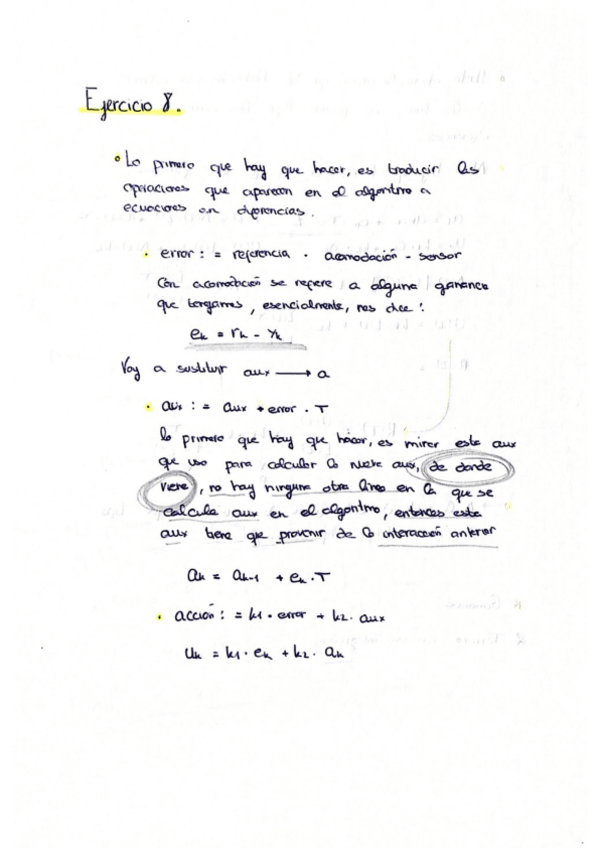 Ejercicio 8.
Lo primero que hay que hacer, es traducir las
operaciones que aparecen en el algoritmo a
ecuaciones en diferencias.
error : = referencia · acomodación - sensor
Con acomodación se refiere a alguna ganancia
que tengamos, esencialmente, nos dice :
ek = rk - yk
Voy a sustituir aux → a
aux : = aux + error · T
lo primero que hay que hacer, es mirar este aux
que uso para calcular la nueva aux, de donde
viene, no hay ninguna otra línea en la que se
calcula aux en el algoritmo, entonces este
aux tiene que provenir de la interacción anterior
ak = ak-1 + ek · T
acción : = k1 · error + k2 · aux
uk = k1 · ek + k2 · ak